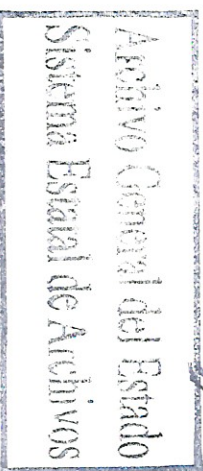 Archivo General del Estado
Sistema Estatal de Archivos